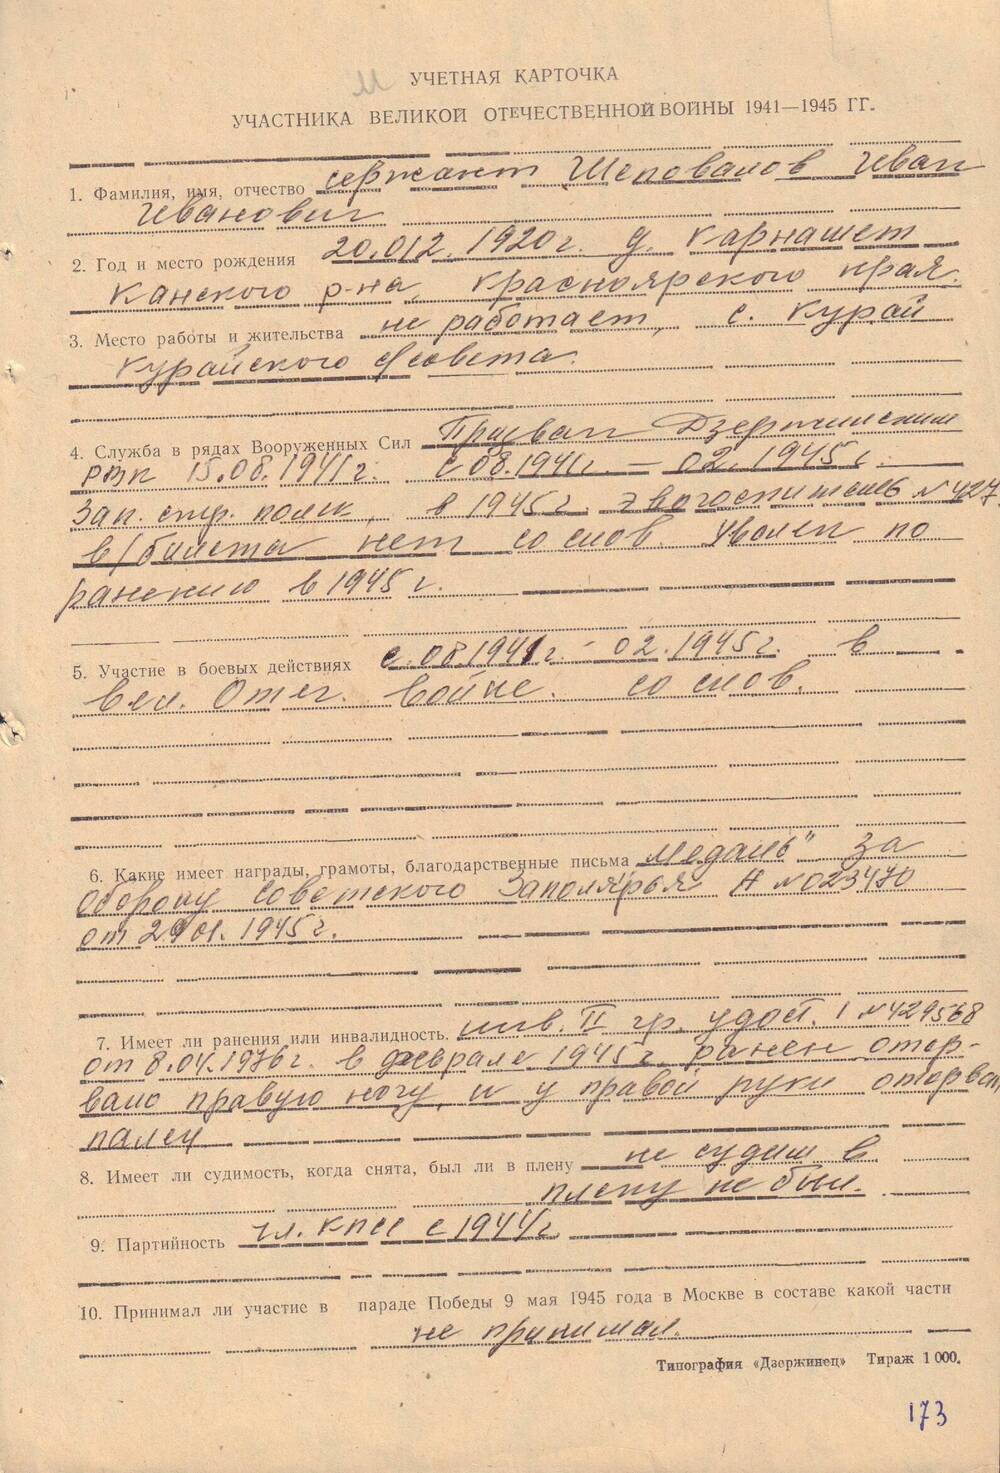 УЧЕТНАЯ КАРТОЧКА
УЧАСТНИКА ВЕЛИКОЙ ОТЕЧЕСТВЕННОЙ ВОЙНЫ 1941—1945 ГГ.
1. Фамилия, имя, отчество сержант Шеповалов Иван
Иванович
2. Год и место рождения 20.012.1920г. д. Карнашет
Канского р-на, Красноярского края.
3. Место работы и жительства не работает, с. Курай
Курайского с/совета.
4. Служба в рядах Вооруженных Сил Призван Дзержинским
РВК 15.08.1941г. с 08.1941г. – 02.1945г.
Зап. стр. полк, в 1945г. эвогоспиталь № 427
в/билета нет со слов. Уволен по
ранению в 1945г.
5. Участие в боевых действиях с 08.1941г. – 02.1945г. в
Вел. Отеч. войне. со слов.
6. Какие имеет награды, грамоты, благодарственные письма медаль " За
оборону Советского Заполярья Н № 023470
от 29.01.1945г.
7. Имеет ли ранения или инвалидность. инв. II гр. удост. 1 № 429568
от 8.04.1976г. в феврале 1945г. ранен отор-
вало правую ногу, и у правой руки оторван
палец
8. Имеет ли судимость, когда снята, был ли в плену не судим в
плену не был.
9. Партийность чл. КПСС с 1944г.
10. Принимал ли участие в параде Победы 9 мая 1945 года в Москве в составе какой части
не принимал.
Типография «Дзержинец» Тираж 1 000.
173